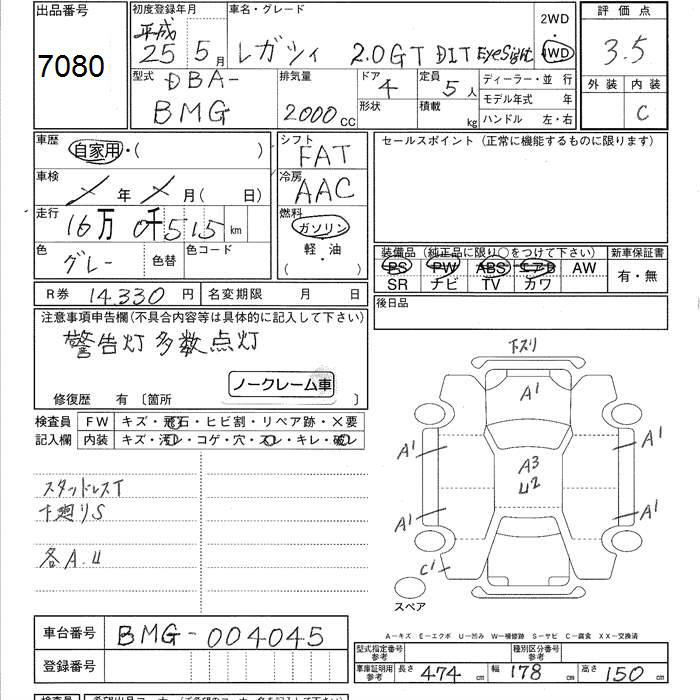 出品番号
7080
初度登録年月
平成
25 5 月
車名・グレード
レガシィ 2.0GT DIT EyeSight
2WD
・
4WD
評価点
3.5
外装 内装
C
型式 DBA-
BMG
排気量
2000 CC
ドア
4
形状
定員
5 人
積載
kg
ディーラー・並 行
モデル年式 年
ハンドル 左・右
車歴
自家用・( )
シフト
FAT
セールスポイント(正常に機能するものに限ります)
車検
年 月( 日)
冷房
AAC
走行
16万 0千515 km
燃料
ガソリン
軽・油
( ・ )
色
グレー
色替
色コード
装備品(純正品に限り○をつけて下さい)
新車保証書
PS PW ABS エアB AW
SR ナビ TV カワ
有・無
R券 14.330 円
名変期限 月 日
後日品
注意事項申告欄(不具合内容等は具体的に記入して下さい)
警告灯多数点灯
ノークレーム車
修復歴 有〔箇所 〕
検査員
記入欄
FW キズ・飛石・ヒビ割・リペア跡・×要
内装 キズ・汚レ・コゲ・穴・スレ・キレ・破レ
スタッドレスT
下廻りS
各A.U
下スリ
A1
A1
A1
A3
U2
A1
A1
C1
スペア
A−キズ E−エクボ U−凹み W−補修跡 S−サビ C−腐食 XX−交換済
車台番号 BMG-004045
登録番号
型式指定番号
参考
種別区分番号
参考
車庫証明用
参考
長さ 474 cm 幅 178 cm 高さ 150 cm